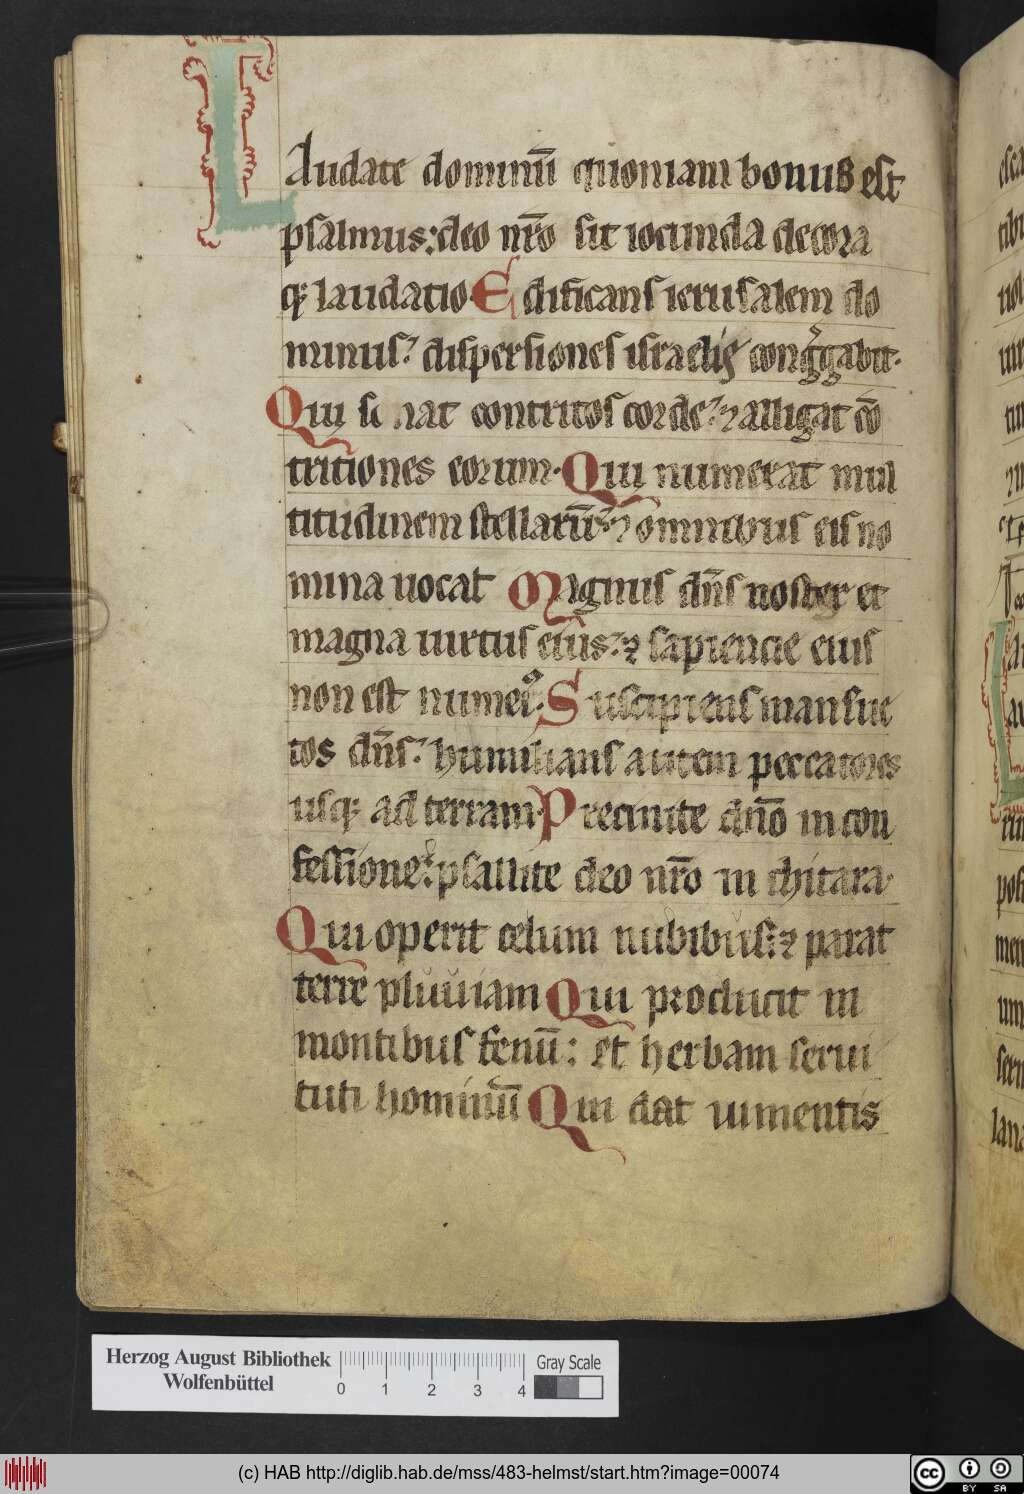 Laudate dominū quoniam bonus est
psalmus: deo nr̄o sit iocunda decora
qꝫ laudatio. Edificans ierusalem do
minus: dispersiones israelis cong͛gabit.
Qui sanat contritos corde: ⁊ alligat cō
tritiones eorum. Qui numerat mul
titudinem stellarū: ⁊ omnibus eis no
mina uocat Magnus dn̄s noster et
magna uirtus eius: ⁊ sapiencie eius
non est numerꝰ. Suscipiens mansue
tos dn̄s: humilians autem peccatores
usqꝫ ad terram. Precinite dn̄o in con
fessione: psallite deo nr̄o in chitara.
Qui operit celum nubibus: ⁊ parat
terre pluuiam Qui producit in
montibus fenū: et herbam serui
tuti hominū Qui dat iumentis
Herzog August Bibliothek
Wolfenbüttel
0 1 2 3 4
Gray Scale
(c) HAB http://diglib.hab.de/mss/483-helmst/start.htm?image=00074
cc BY SA